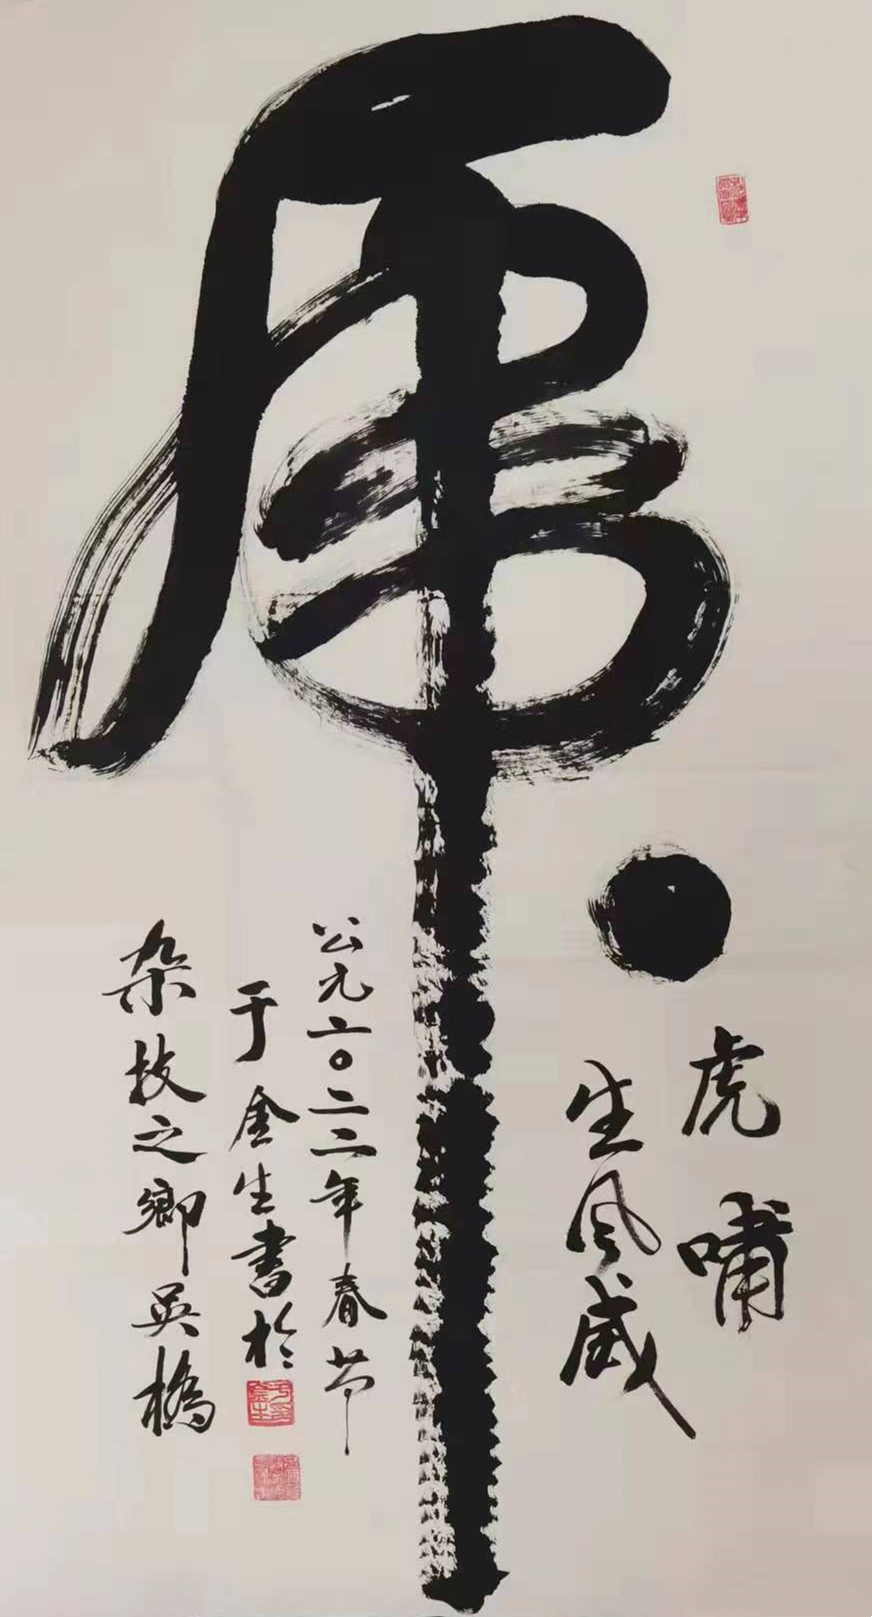 虎
虎啸
生风威
公元二〇二二年春节
于金生书於
杂技之乡吴桥